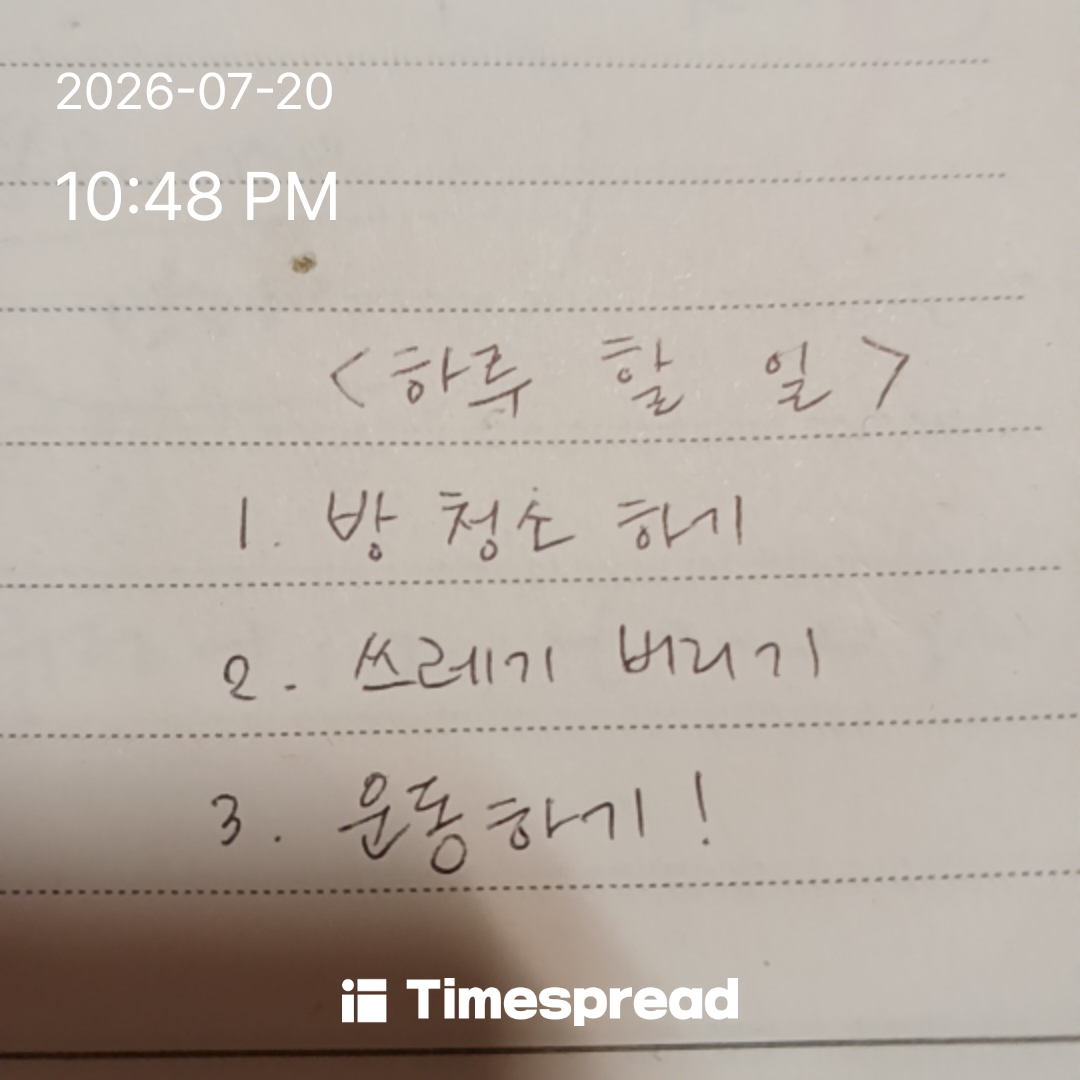 2026-07-20
10:48 PM
<하루 할 일>
1. 방 청소 하기
2. 쓰레기 버리기
3. 운동하기!
Timespread